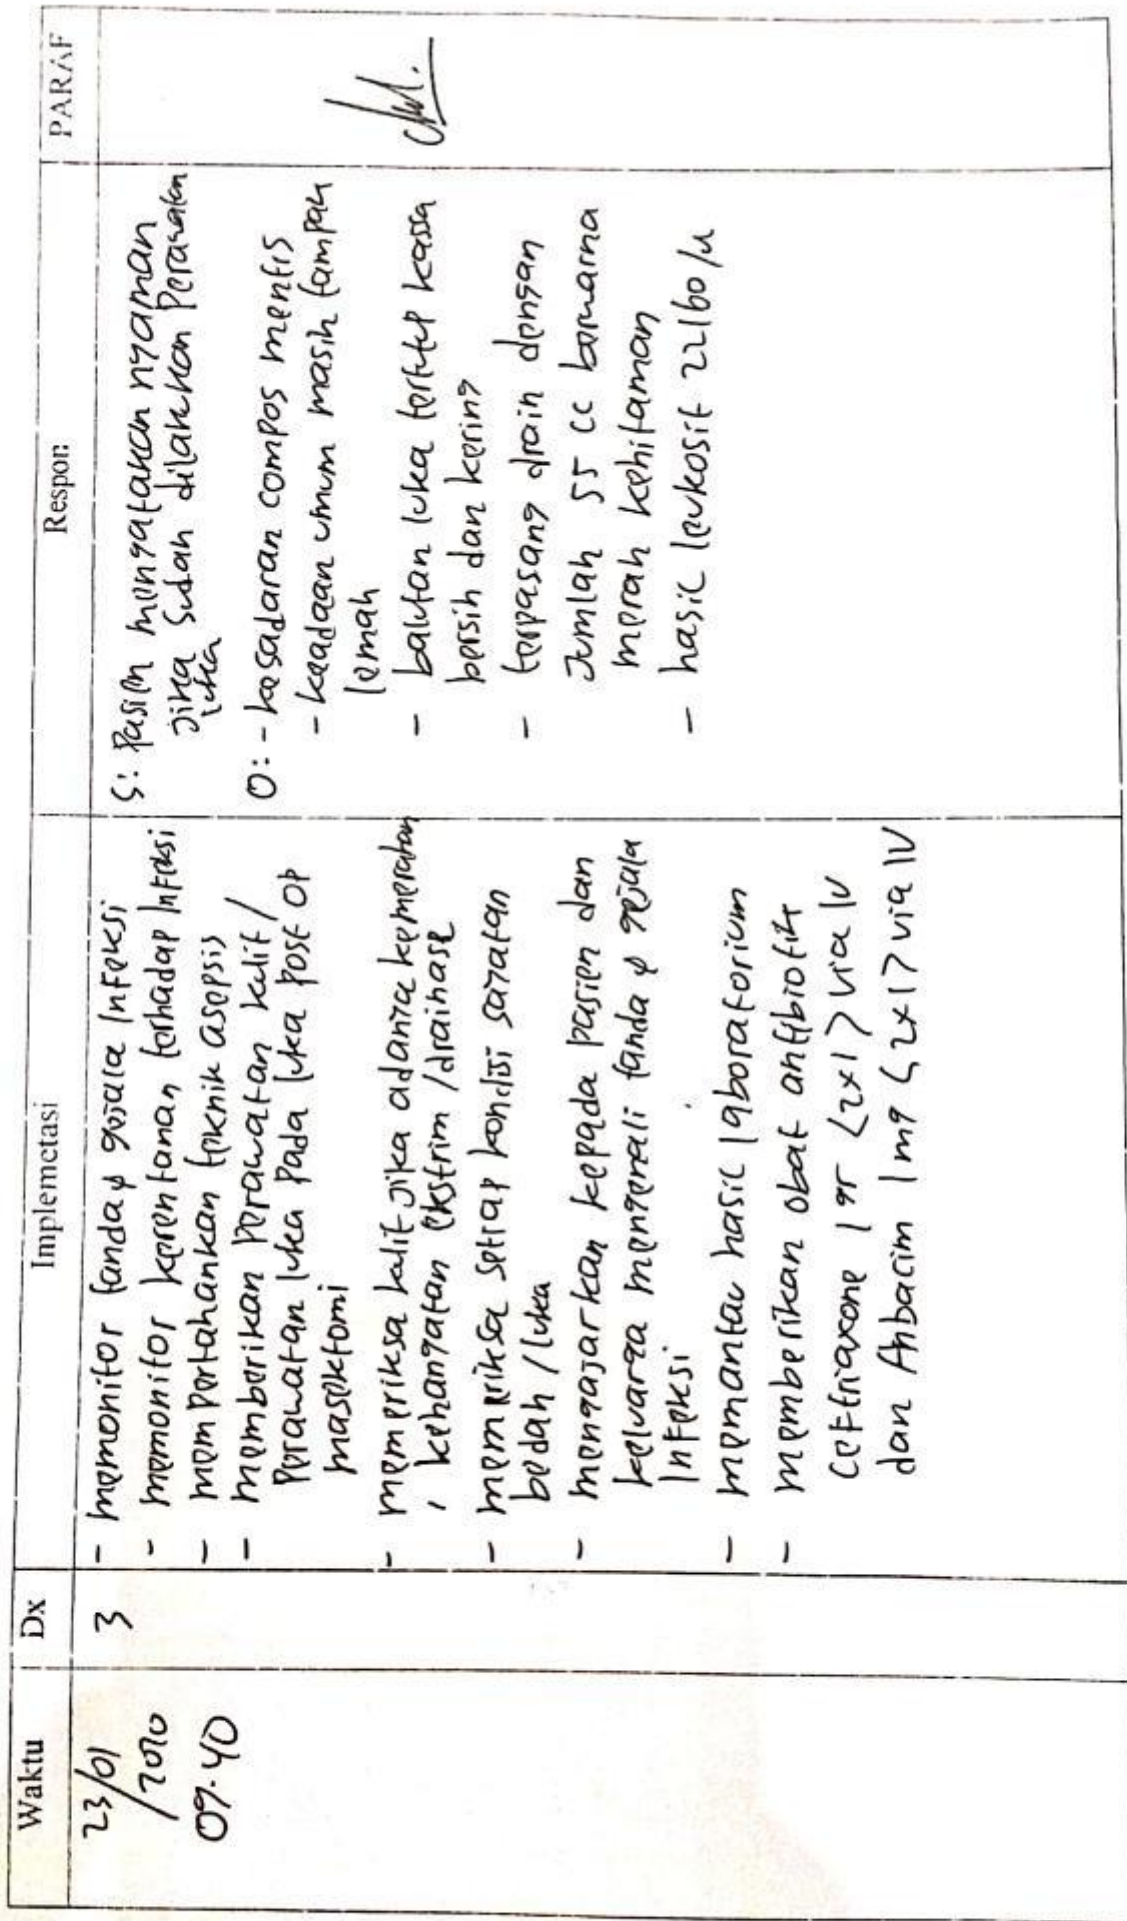 Waktu Dx Implemetasi Respon PARAF
23/01
/2020
09.40
3
- memonitor tanda & gejala infeksi
- memonitor kerentanan terhadap infeksi
- mempertahankan teknik asepsis
- memberikan perawatan kulit /
perawatan luka pada luka post op
masektomi
- memeriksa kulit jika adanya kemerahan
, kehangatan ekstrim / drainase
- memeriksa setiap kondisi sayatan
bedah / luka
- mengajarkan kepada pasien dan
keluarga mengenali tanda & gejala
infeksi
- memantau hasil laboratorium
- memberikan obat antibiotik
ceftriaxone 1 gr <2x1> via IV
dan Anbacim 1 mg <2x1> via IV
S: Pasien mengatakan nyaman
jika sudah dilakukan perawatan
luka
O: - kesadaran compos mentis
- keadaan umum masih tampak
lemah
- balutan luka tertutup kassa
bersih dan kering
- terpasang drain dengan
Jumlah 55 cc berwarna
merah kehitaman
- hasil leukosit 22160 /u